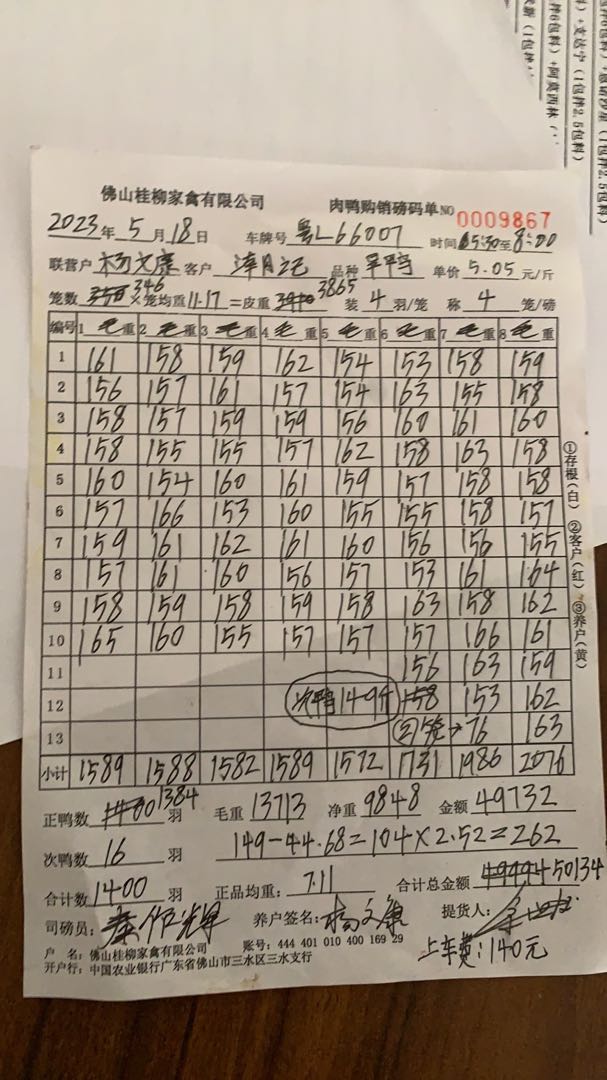 佛山桂柳家禽有限公司 肉鸭购销磅码单 NO 0009867
2023年5月18日 车牌号 粤L66007 时间 05:30至8:00
联营户 杨文康 客户 品种 单价 5.05 元/斤
笼数 350 346 ×笼均重 11.17 =皮重 3865 装 4 羽/笼 称 4 笼/磅
编号 1 毛重 2 毛重 3 毛重 4 毛重 5 毛重 6 毛重 7 毛重 8 毛重
1 161 158 159 162 154 153 158 159
2 156 157 161 157 154 163 155 158
3 158 157 159 159 156 160 161 160
4 158 155 155 157 162 158 163 158
5 160 154 160 161 159 157 158 158
6 157 166 153 160 155 155 158 157
7 159 161 162 161 160 156 156 155
8 157 161 160 156 157 153 161 164
9 158 159 158 159 158 163 158 162
10 165 160 155 157 157 157 166 161
11 156 163 159
12 次鸭149斤 158 153 162
13 ②笼→76 163
小计 1589 1588 1582 1589 1572 1731 1986 2076
正鸭数 1400 1384 羽 毛重 13713 净重 9848 金额 49732
次鸭数 16 羽 149-44.68=104×2.52=262
合计数 1400 羽 正品均重: 7.11 合计总金额 49994 50134
司磅员: 养户签名: 杨文康 提货人:
上车费: 140元
户 名: 佛山桂柳家禽有限公司 账号: 444 401 010 400 169 29
开户行: 中国农业银行广东省佛山市三水区三水支行
①存根(白) ②客户(红) ③养户(黄)
(1包拌2.5包料)
+支达宁(1包拌2.5包料)
拌6包料)+阿莫西林(